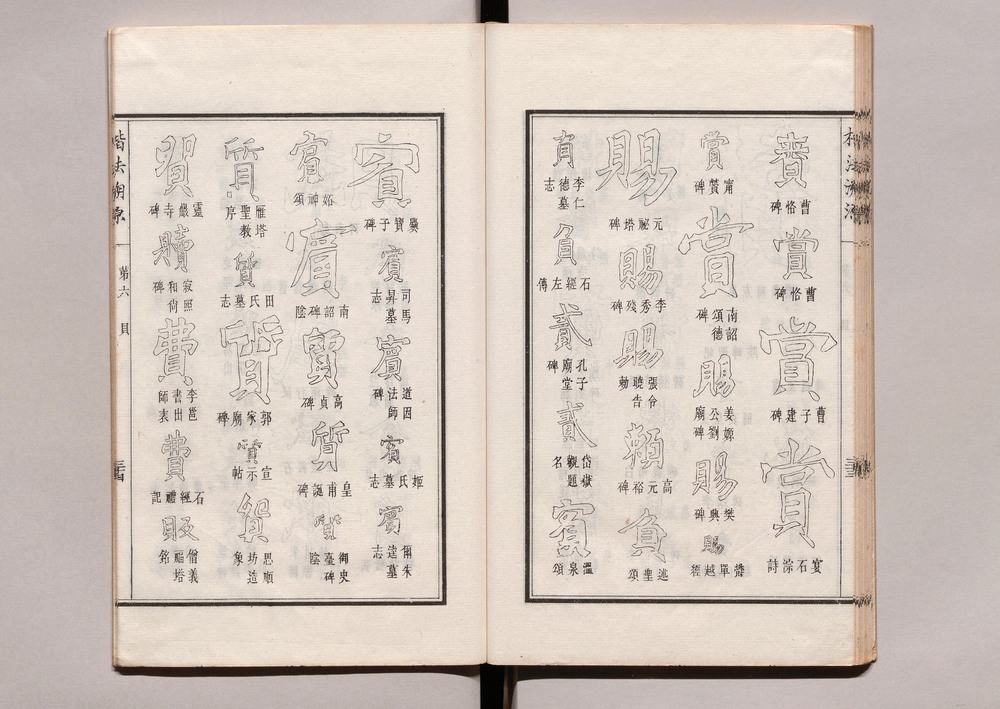 楷法溯源
賚 曹恪碑
賞 曹恪碑
賞 曹子建碑
賞 宴石淙詩
賞 甯贙碑
賞 南詔德頌碑
賜 姜嫄公劉廟碑
賜 樊興碑
賜 單越經
賜 元祕塔碑
賜 李秀殘碑
賜 張令曉告勅
賴 高元裕碑
負 述聖頌
負 李仁德墓志
負 石經左傳
貳 孔子廟堂碑
貳 岱嶽觀題名
賓 溫泉頌
賓 爨寶子碑
賓 司馬昇墓志
賓 道因法師碑
賓 姬氏墓志
賓 爾朱逵墓志
賓 妬神頌
賓 南詔碑陰
質 高貞碑
質 皇甫誕碑
質 御史臺碑陰
質 雁塔聖教序
質 田氏墓志
質 郭家廟碑
質 宣示帖
貿 思順坊造象
貿 靈巖寺碑
贖 寂照和尙碑
費 李邕書出師表
費 石經禮記
販 僧義福塔銘
楷法溯源 第六 貝